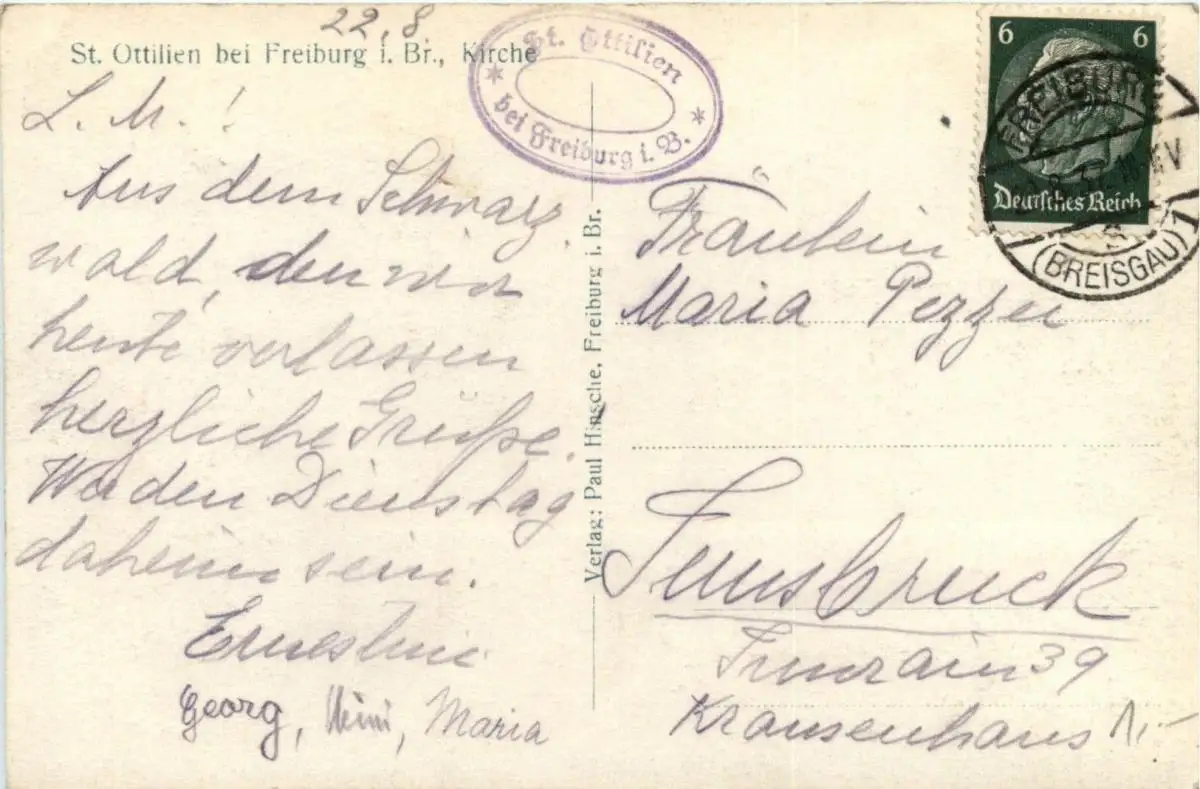 22.8
St. Ottilien bei Freiburg i. Br., Kirche
St. Ottilien
bei Freiburg i. B.
L. M.!
Aus dem Schwarz
wald, den wir
heute verlassen
herzliche Grüße.
Werden Dienstag
daheim sein.
Ernestine
Georg, Heini, Maria
Verlag: Paul Hinsche, Freiburg i. Br.
6 6
Deutsches Reich
FREIBURG
(BREISGAU) 1
Fräulein
Maria Pezzei
Innsbruck
Innrain 39